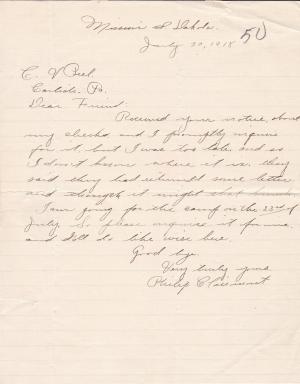 Mission S. Dakota.
July 20, 1918
50
C. V Peel
Carlisle. Pa.
Dear Friend:
Received your notice, about
my checks and I promptly inquire
for it, but I was too late. and so
I don't know where it is. they
said they had returned some letter
and thought it might that
I am going for the camp on the 22nd of
July so please inquire it for me.
and I'll do like wise here.
Good bye.
Very truly yours
Philip